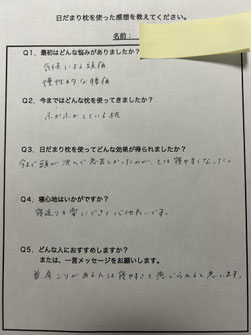 日だまり枕を使った感想を教えてください。
名前:
Q1. 最初はどんな悩みがありましたか?
気候による頭痛
慢性的な腰痛
Q2. 今まではどんな枕を使ってきましたか?
ふかふかしている枕
Q3. 日だまり枕を使ってどんな効果が得られましたか?
今まで頭が沈んで息苦しかったのが、とても寝やすくなった。
Q4. 寝心地はいかがですか?
寝返りも楽にできて心地いいです。
Q5. どんな人におすすめしますか?
または、一言メッセージをお願いします。
首肩こりがある人は寝やすさを感じられると思います。